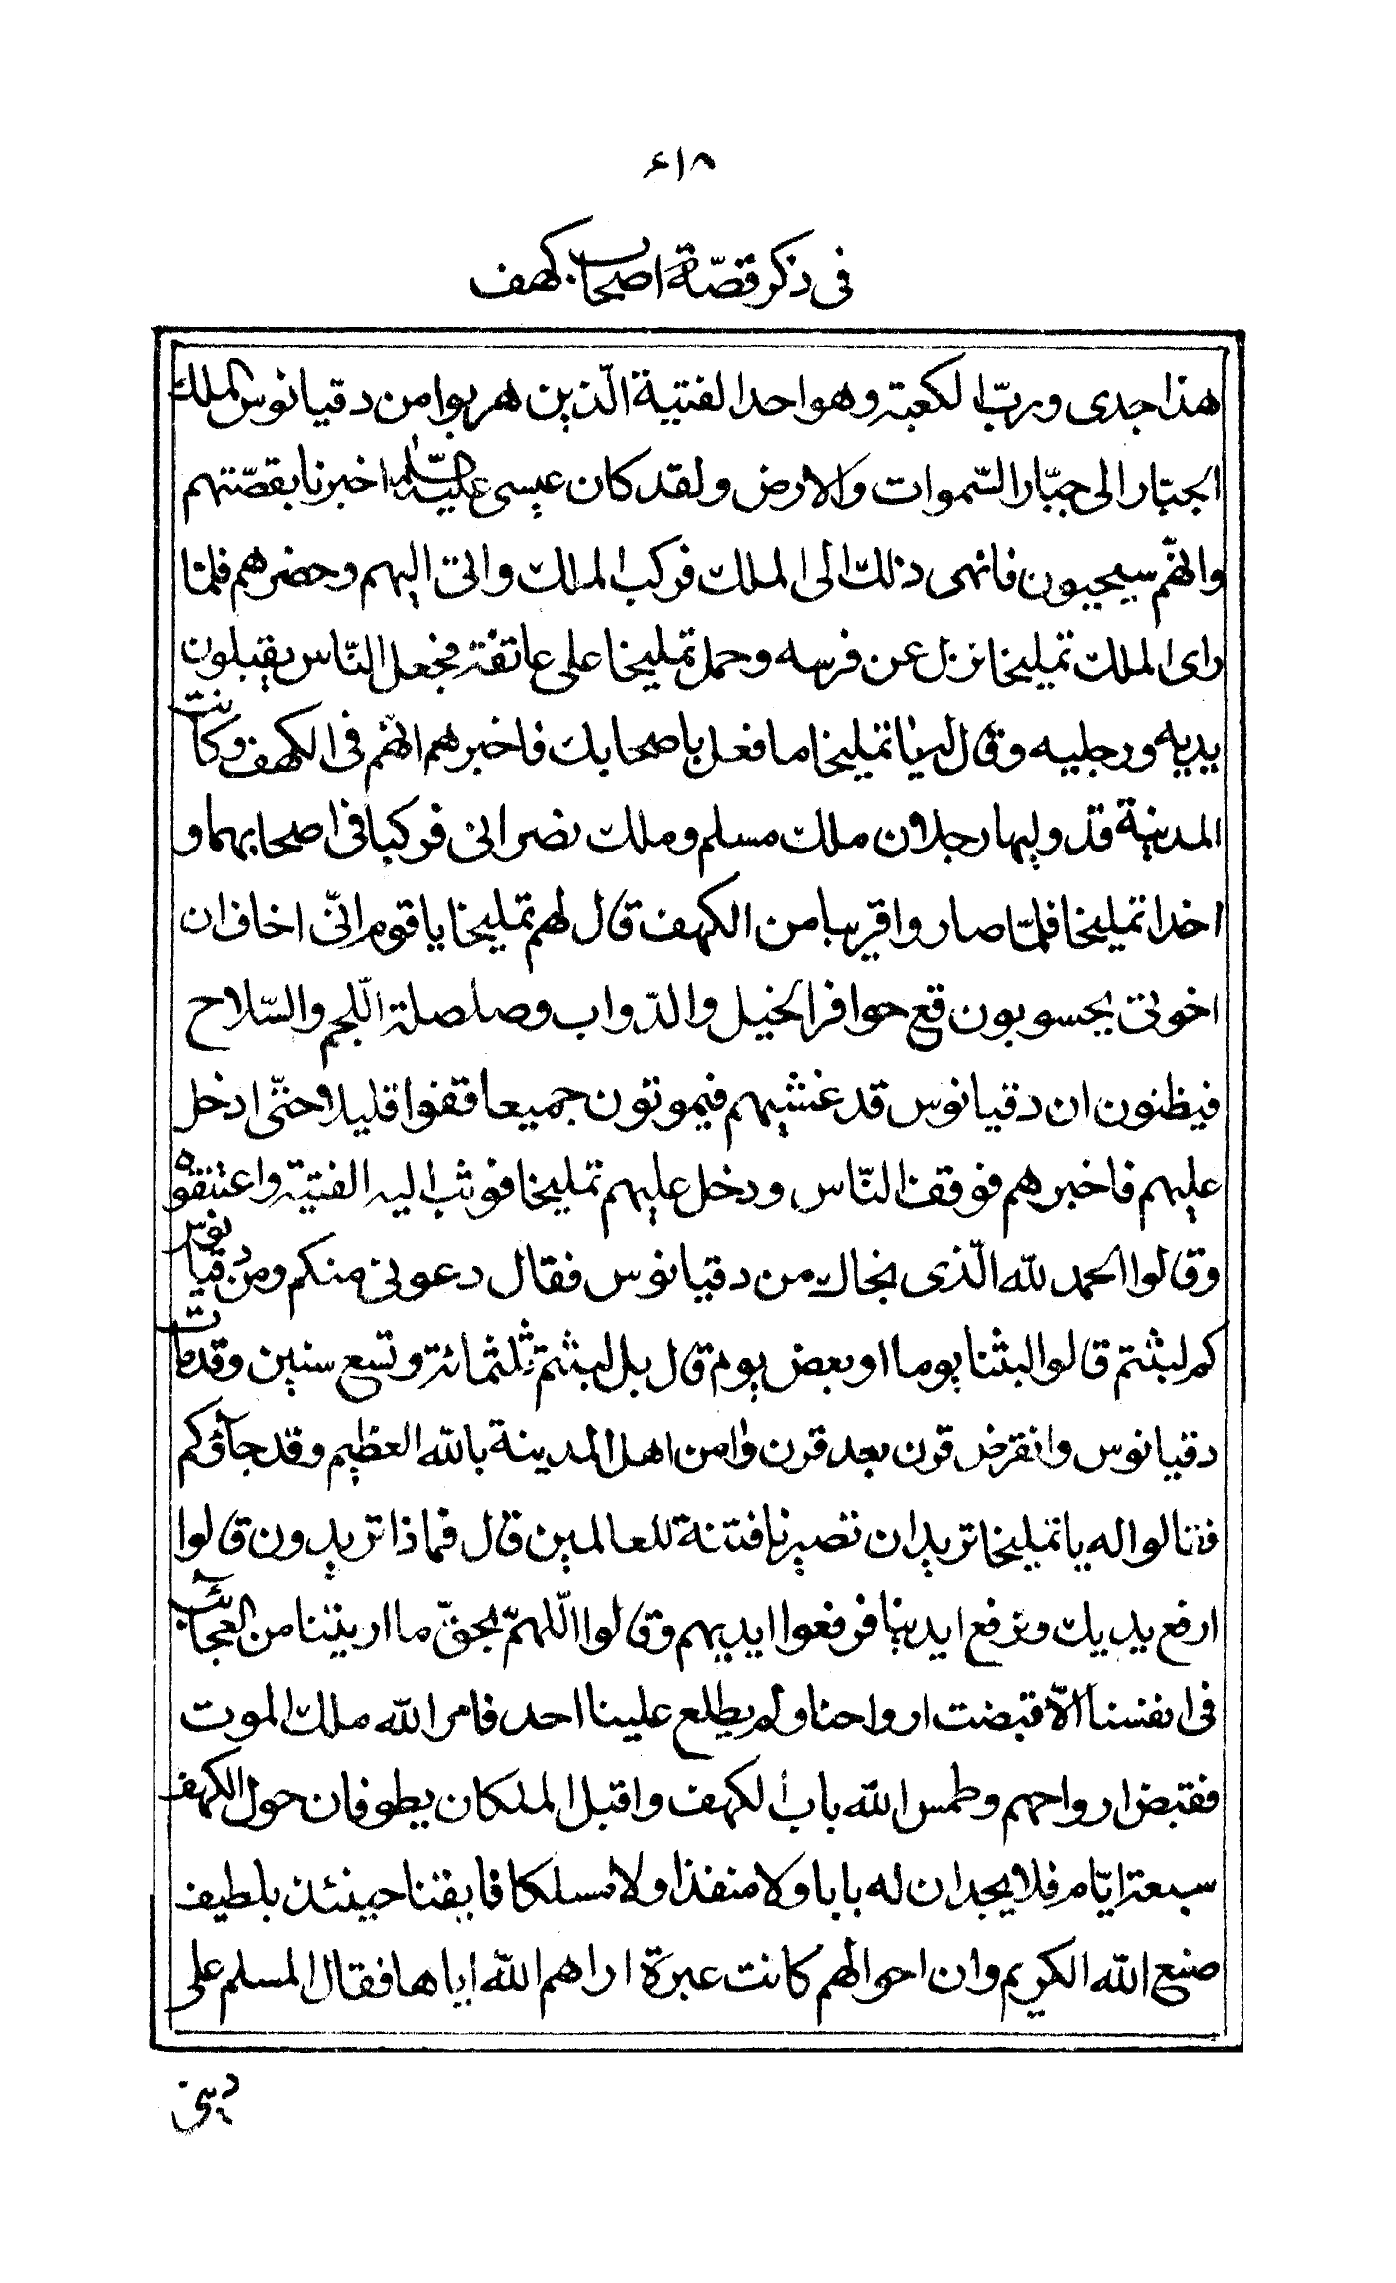 ٤١٨
فى ذكر قصّة اصحاب كهف
هذا جدى وربّ الكعبة وهو احد الفتية الّذين هربوا من دقيانوس الملك
الجبّار الى جبّار السّموات والارض ولقد كان عيسى عليه السّلام اخبرنا بقصّتهم
وانّهم سيحيون فانهى ذلك الى الملك فركب الملك واتى اليهم وحضرهم فلمّا
راى الملك تمليخا نزل عن فرسه وحمل تمليخا على عاتقه فجعل النّاس يقبلون
يديه ورجليه وقال له يا تمليخا ما فعل باصحابك فاخبرهم انّهم فى الكهف وكانت
المدينة قد وليها رجلان ملك مسلم وملك نصرانى فركبا فى اصحابهما و
اخذا تمليخا فلمّا صاروا قريبا من الكهف قال لهم تمليخا يا قوم انّى اخاف ان
اخوتى يحسوبون قع حوافر الخيل والدّواب وصلصلة اللّجم والسّلاح
فيظنون ان دقيانوس قد غشيهم فيموتون جميعا فقفوا قليلا حتّى ادخل
عليهم فاخبرهم فوقف النّاس ودخل عليهم تمليخا فوثب اليه الفتية واعتنقوه
وقالوا الحمد للّه الّذى نجاك من دقيانوس فقال دعونى منكم ومن دقيانوس
كم لبثتم قالوا لبثنا يوما او بعض يوم قال بل لبثتم ثلثمائة وتسع سنين وقد مات
دقيانوس وانقرض قرن بعد قرن وامن اهل المدينة باللّه العظيم وقد جآؤكم
فقالوا له يا تمليخا تريد ان تصيرنا فتنة للعالمين قال فماذا تريدون قالوا
ارفع يديك ونرفع ايدينا فرفعوا ايديهم وقالوا اللّهمّ بحقّ ما اريتنا من العجائب
فى انفسنا الّا قبضت ارواحنا ولم يطلع علينا احد فامر اللّه ملك الموت
فقبض ارواحهم وطمس اللّه باب الكهف واقبل الملكان يطوفان حول الكهف
سبعة ايّام فلا يجدان له بابا ولا منفذا ولا مسلكا فايقنا حينئذ بلطيف
صنع اللّه الكريم وان احوالهم كانت عبرة اراهم اللّه اياها فقال المسلم على
دينى